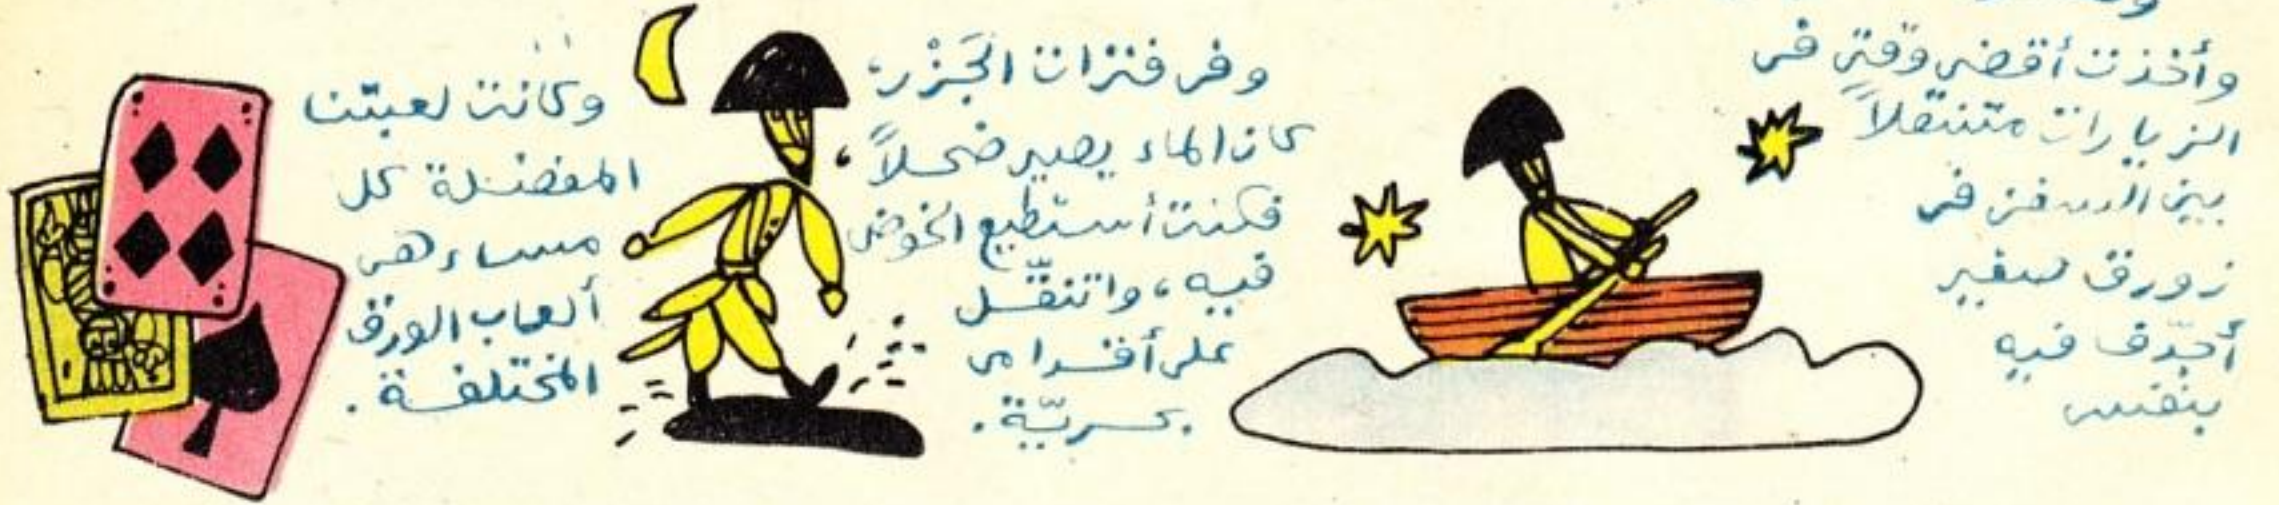 وأخذت أقضى وقتى فى
الزيارات متنقلاً
بين السفن فى
زورق صغير
أجدّف فيه
بنفسى
وفى فترات الجَزْر،
كان الماء يصير ضحلاً،
فكنت أستطيع الخوض
فيه، واتنقّل
على أقدامى
بحريّة.
وكانت لعبتنا
المفضلة كل
مساء هى
ألعاب الورق
المختلفة.